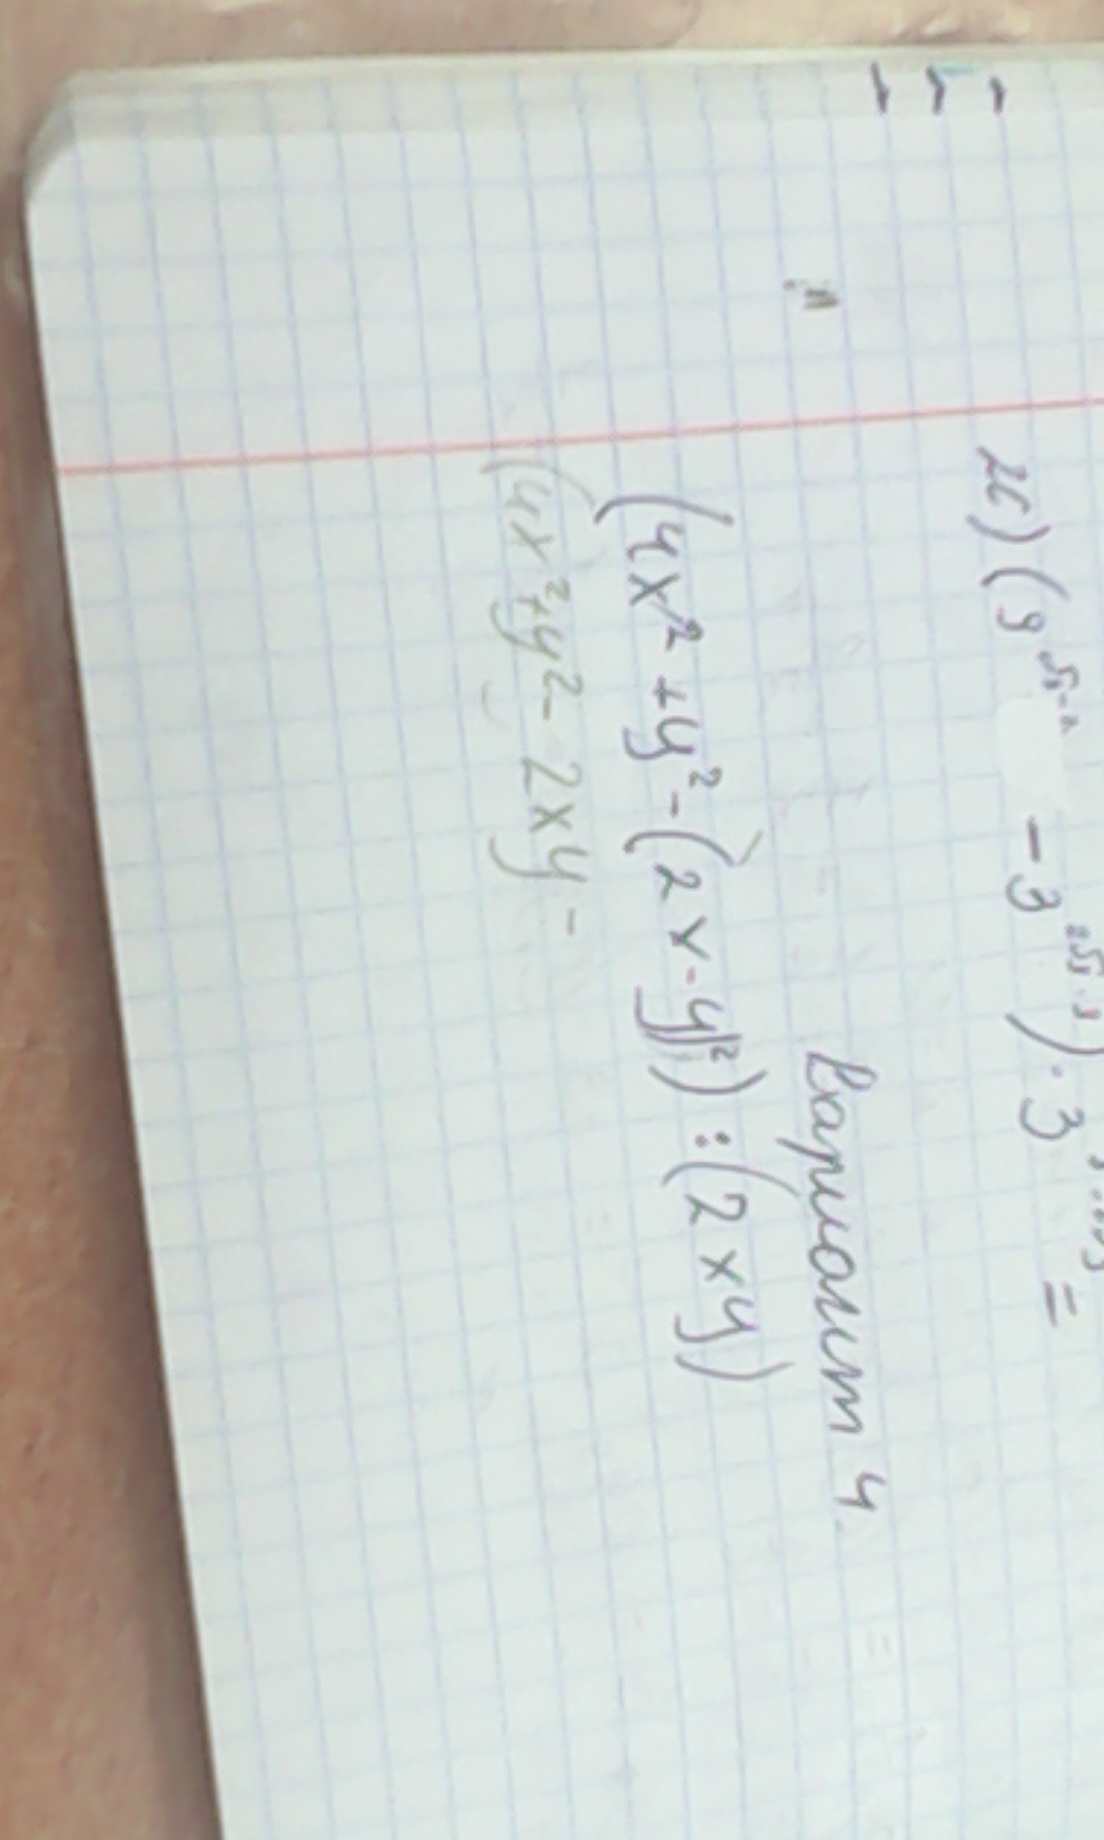 2б) (9 - 3) · 3 =
Вариант 4
(4x² + y² - (2x - y)²) : (2xy)
(4x² + y² - 2xy -